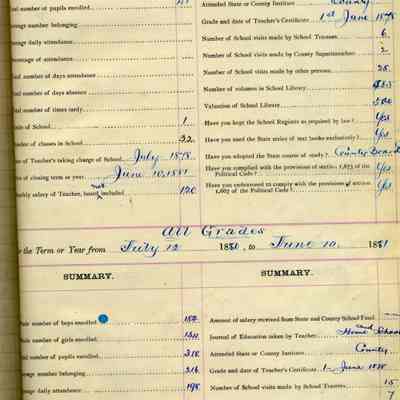 number of pupils enrolled
number belonging
daily attendance
of attendance
number of days attendance
number of days absence
number of times tardy
of School 1
of classes in School 32
of Teacher's taking charge of School July 1878.
of closing term or year June 10, 1881
salary of Teacher, board not included 120
Attended State or County Institute County
Grade and date of Teacher's Certificate 1st June 1878
Number of School visits made by School Trustees 6
Number of School visits made by County Superintendent 2
Number of School visits made by other persons 25
Number of volumes in School Library
Valuation of School Library
Have you kept the School Register as required by law? Yes
Have you used the State series of text books exclusively? Yes
Have you adopted the State course of study? County Board
Have you complied with the provisions of section 1,663 of the Political Code? Yes
Have you endeavored to comply with the provisions of section 1,667 of the Political Code? Yes
All Grades
the Term or Year from July 12 1880, to June 10, 1881
SUMMARY.
number of boys enrolled 184
number of girls enrolled
number of pupils enrolled 318
number belonging 216
daily attendance 198
SUMMARY.
Amount of salary received from State and County School Fund
Journal of Education taken by Teacher and Home School
Attended State or County Institute County
Grade and date of Teacher's Certificate 1- June 1878
Number of School visits made by School Trustees 15
7